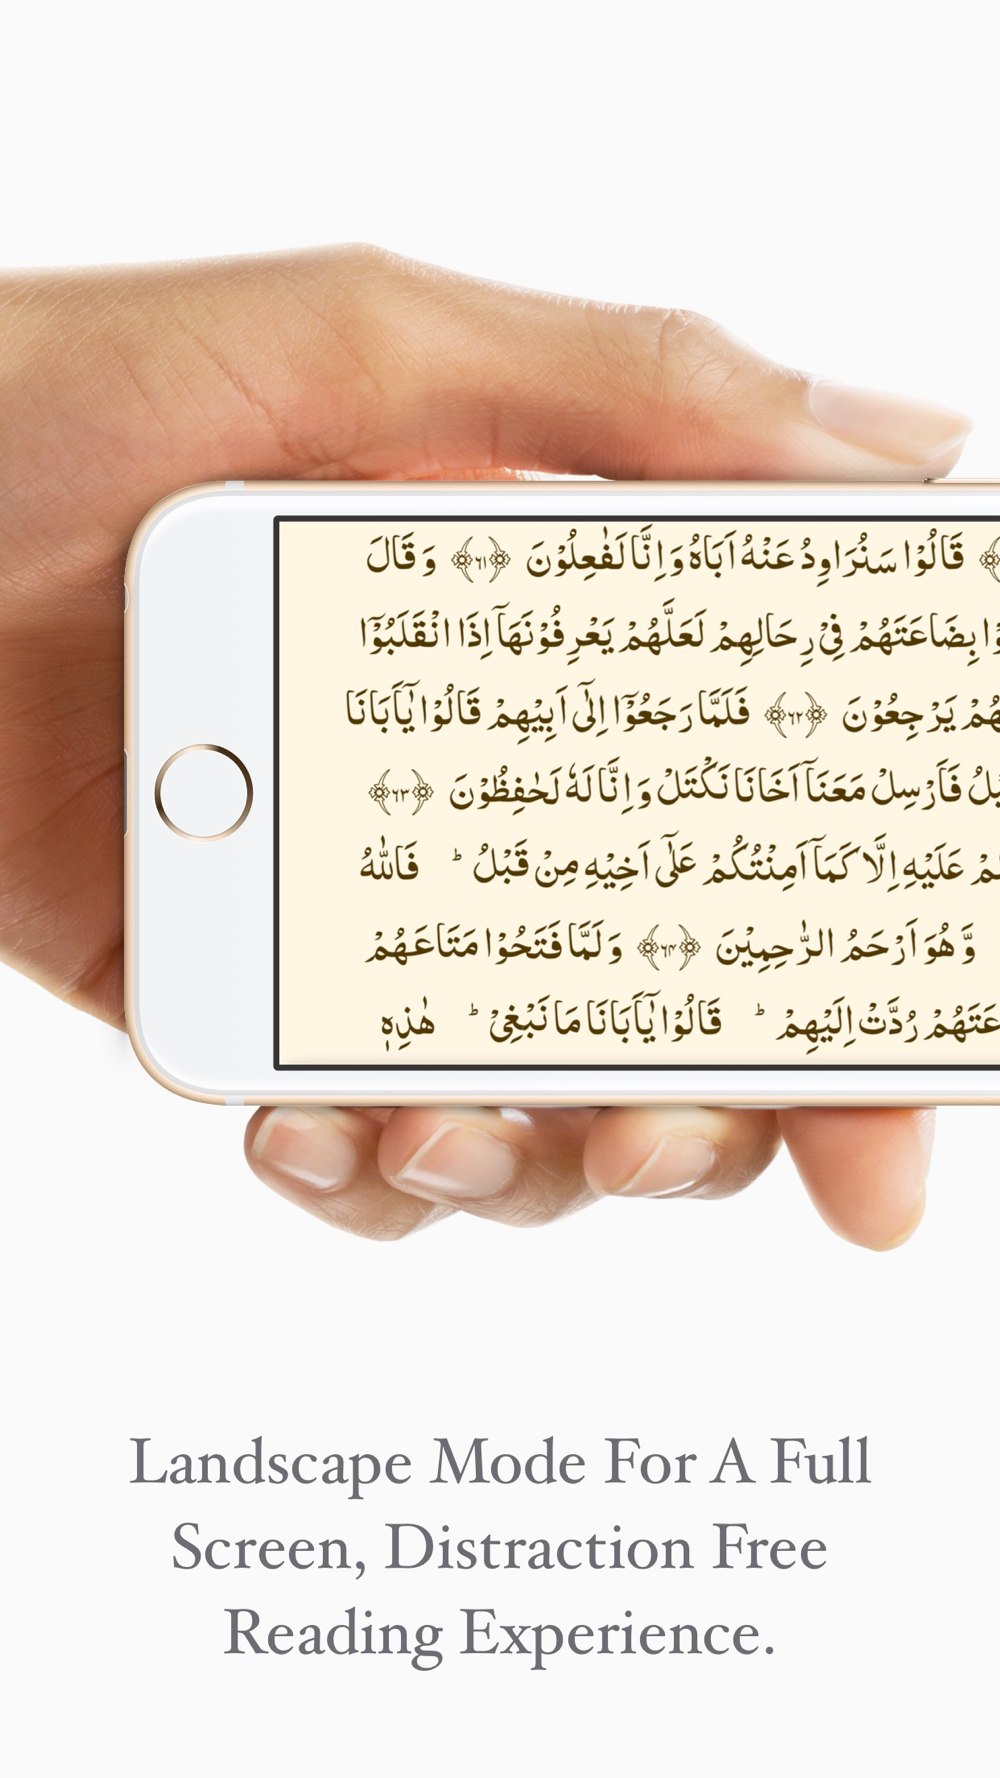 قَالُوْا سَنُرَاوِدُ عَنْهُ اَبَاهُ وَ اِنَّا لَفٰعِلُوْنَ ﴿۶۱﴾ وَ قَالَ
بِضَاعَتَهُمْ فِیْ رِحَالِهِمْ لَعَلَّهُمْ یَعْرِفُوْنَهَاۤ اِذَا انْقَلَبُوْۤا
یَرْجِعُوْنَ ﴿۶۲﴾ فَلَمَّا رَجَعُوْۤا اِلٰۤی اَبِیْهِمْ قَالُوْا یٰۤاَبَانَا
فَاَرْسِلْ مَعَنَاۤ اَخَانَا نَكْتَلْ وَ اِنَّا لَهٗ لَحٰفِظُوْنَ ﴿۶۳﴾
عَلَیْهِ اِلَّا كَمَاۤ اَمِنْتُكُمْ عَلٰۤی اَخِیْهِ مِنْ قَبْلُ ؕ فَاللّٰهُ
وَّ هُوَ اَرْحَمُ الرّٰحِمِیْنَ ﴿۶۴﴾ وَ لَمَّا فَتَحُوْا مَتَاعَهُمْ
رُدَّتْ اِلَیْهِمْ ؕ قَالُوْا یٰۤاَبَانَا مَا نَبْغِیْ ؕ هٰذِهٖ
Landscape Mode For A Full
Screen, Distraction Free
Reading Experience.